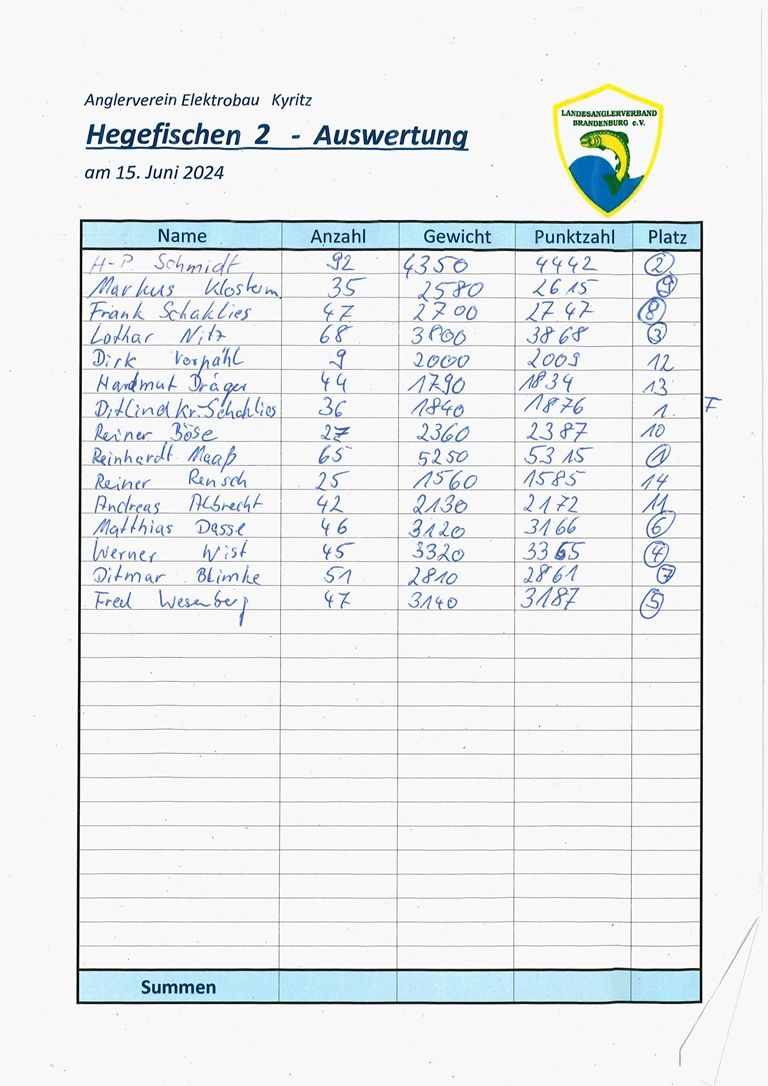 Anglerverein Elektrobau Kyritz
Hegefischen 2 - Auswertung
am 15. Juni 2024
LANDESANGLERVERBAND
BRANDENBURG e.V.
Name Anzahl Gewicht Punktzahl Platz
H-P Schmidt 92 4350 4442 2
Markus Klosterm. 35 2580 2615 9
Frank Schaklies 47 2700 2747 8
Lothar Nitz 68 3800 3868 3
Dirk Vorpahl 9 2000 2009 12
Hardmut Dräger 44 1790 1834 13
Ditlind Kr.-Schaklies 36 1840 1876 1. F
Reiner Böse 27 2360 2387 10
Reinhardt Maaß 65 5250 5315 1
Reiner Rensch 25 1560 1585 14
Andreas Albrecht 42 2130 2172 11
Matthias Dasse 46 3120 3166 6
Werner Wist 45 3320 3365 4
Ditmar Blimke 51 2810 2861 7
Fred Wesenberg 47 3140 3187 5
Summen